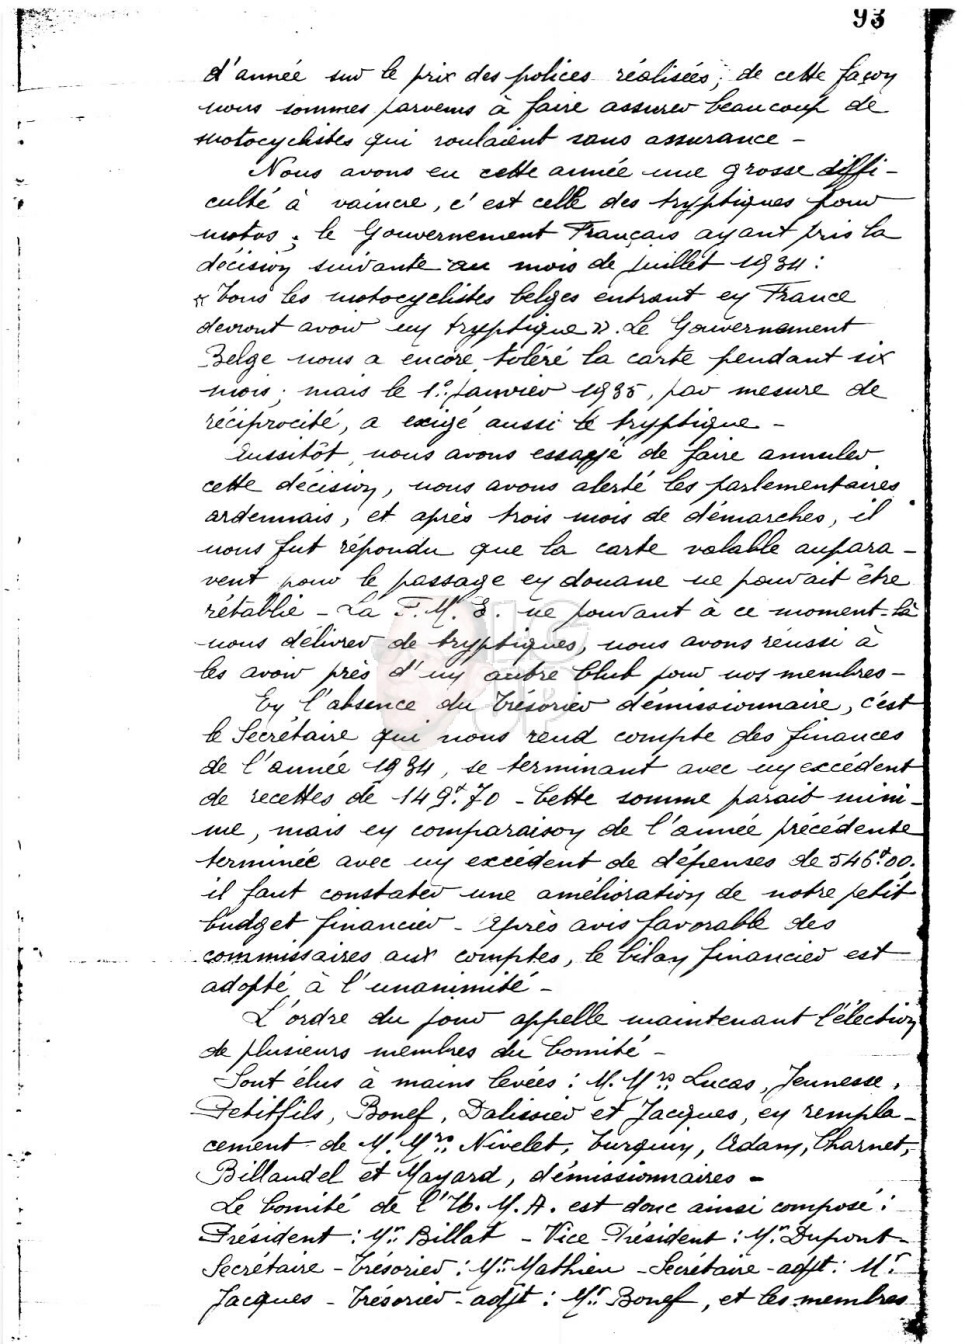 93
d'année sur le prix des polices réalisées; de cette façon
nous sommes parvenus à faire assurer beaucoup de
motocyclistes qui roulaient sans assurance -
Nous avons eu cette année une grosse diffi-
culté à vaincre, c'est celle des tryptiques pour
motos; le Gouvernement Français ayant pris la
décision suivante au mois de juillet 1934:
« Tous les motocyclistes belges entrant en France
devront avoir un tryptique ». Le Gouvernement
Belge nous a encore toléré la carte pendant six
mois; mais le 1er janvier 1935, par mesure de
réciprocité, a exigé aussi le tryptique -
Aussitôt, nous avons essayé de faire annuler
cette décision, nous avons alerté les parlementaires
ardennais, et après trois mois de démarches, il
nous fut répondu que la carte valable aupara-
vent pour le passage en douane ne pouvait être
rétablie - La F. M. E. ne pouvant à ce moment-là
nous délivrer de tryptiques, nous avons réussi à
les avoir près d'un autre Club pour nos membres -
En l'absence du Trésorier démissionnaire, c'est
le Secrétaire qui nous rend compte des finances
de l'année 1934, se terminant avec un excédent
de recettes de 149f.70 - Cette somme parait mini-
me, mais en comparaison de l'année précédente
terminée avec un excédent de dépenses de 546f00.
il faut constater une amélioration de notre petit
budget financier - Après avis favorable des
commissaires aux comptes, le bilan financier est
adopté à l'unanimité -
L'ordre du jour appelle maintenant l'élection
de plusieurs membres du Comité -
Sont élus à mains levées: M. Mrs Lucas, Jeunesse,
Petitfils, Bonef, Dalissier et Jacques, en rempla-
cement de M. Mrs Nivelet, Turquin, Adam, Charnet,
Billaudel et Mayard, démissionnaires -
Le Comité de l'U. M. A. est donc ainsi composé:
Président: Mr Billat - Vice-Président: Mr Dupont -
Secrétaire - Trésorier: Mr Mathieu - Secrétaire-adjt: Mr
Jacques - Trésorier-adjt: Mr Bonef, et les membres